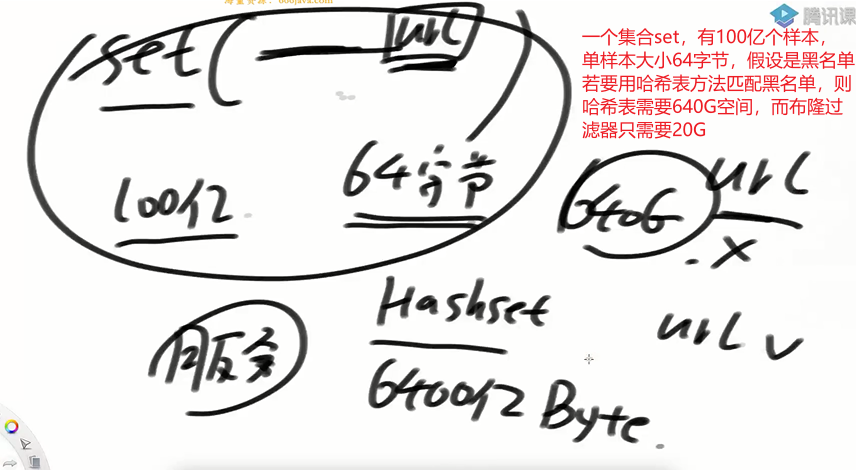 海量资源：666java.com
腾讯课
一个集合set，有100亿个样本，
单样本大小64字节，假设是黑名单
若要用哈希表方法匹配黑名单，则
哈希表需要640G空间，而布隆过
滤器只需要20G
set ( url )
100亿 64字节
640G url
x
服务 Hashset url v
6400亿 Byte